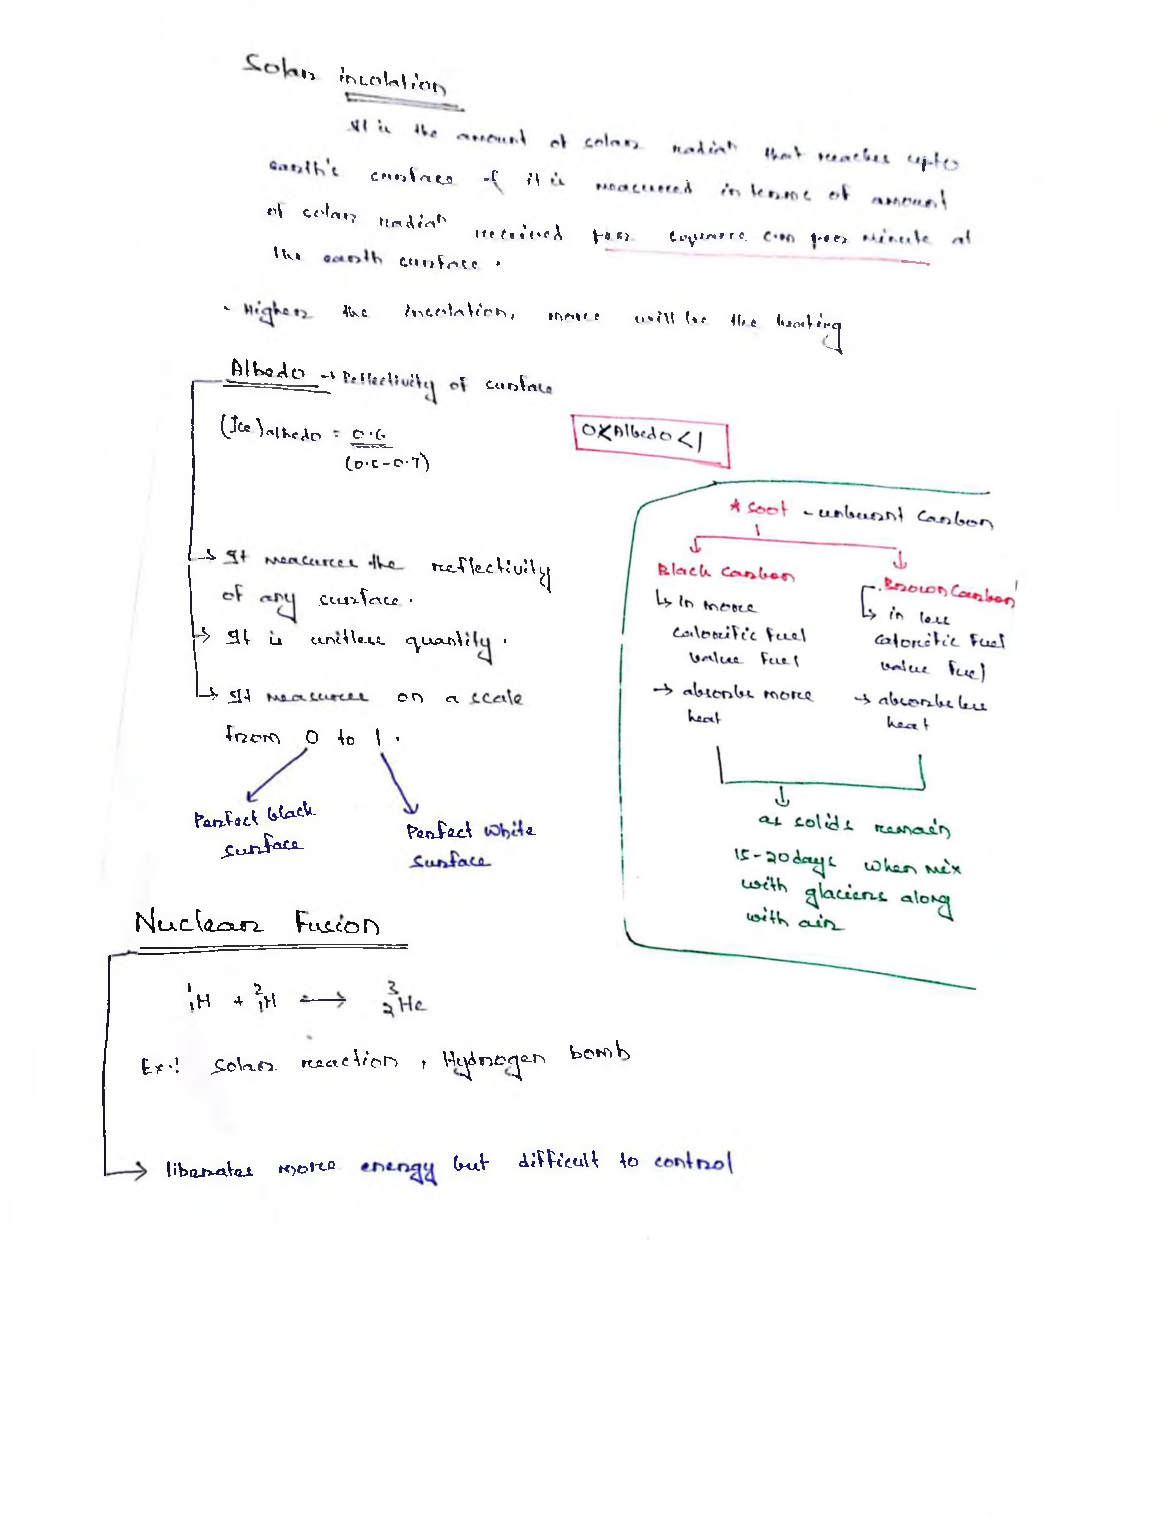 Solar insolation
It is the amount of solar radiatn that reaches upto
earth's surface & it is measured in terms of amount
of solar radiatn received per square cm per minute at
the earth surface.
- Higher the insolation, more will be the heating
Albedo → Reflectivity of surface
(Ice)albedo = 0.6
(0.5-0.7)
0<Albedo<1
→ It measures the reflectivity
of any surface.
→ It is unitless quantity.
→ It measures on a scale
from 0 to 1.
Perfect black
surface
Perfect White
surface
* Soot - unburnt Carbon
Black Carbon
↳ In more
calorific fuel
value fuel
→ absorbs more
heat
Brown Carbon
↳ in less
calorific fuel
value fuel
→ absorbs less
heat
as solids remain
15-20 days when mix
with glaciers along
with air
Nuclear Fusion
¹₁H + ²₁H → ³₂He
Ex.: Solar reaction, Hydrogen bomb
→ liberates more energy but difficult to control